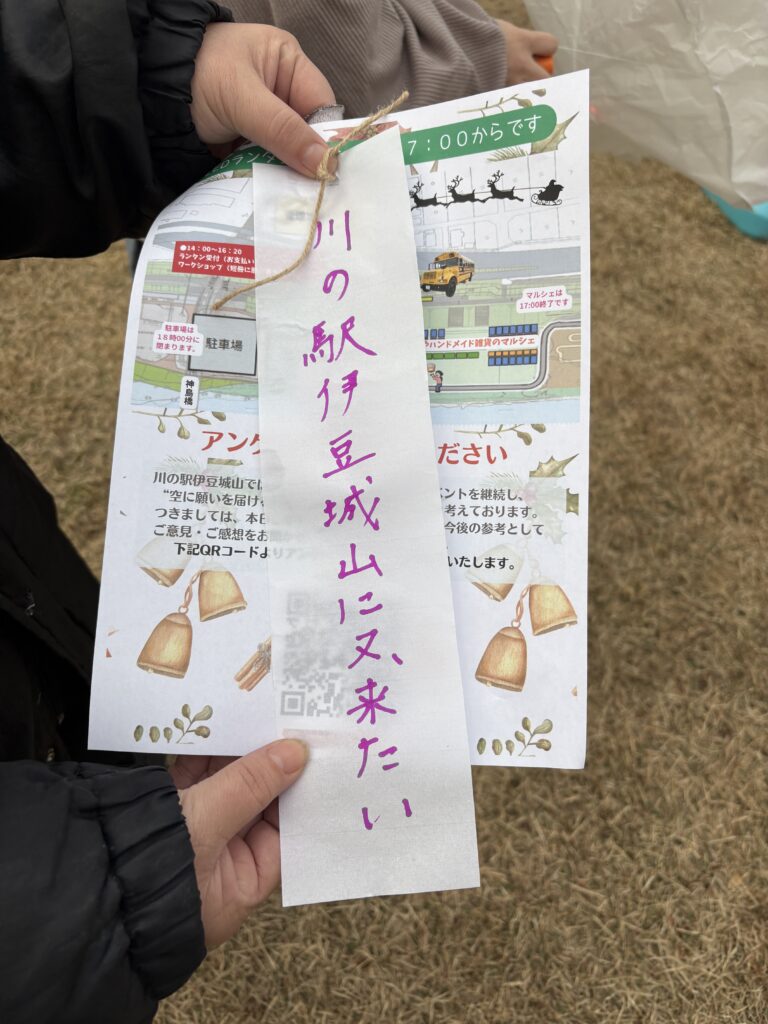 7：00からです
●14：00～16：20
ランタン受付（お支払い
ワークショップ（短冊に
マルシェは
17:00終了です
駐車場は
18時00分に
閉まります。
駐車場
ハンドメイド雑貨のマルシェ
神島橋
川の駅伊豆城山に又、来たい
アン
ださい
川の駅伊豆城山では
ベントを継続し、
“空に願いを届け
考えております。
つきましては、本日
今後の参考として
ご意見・ご感想をお
下記QRコードより
いたします。